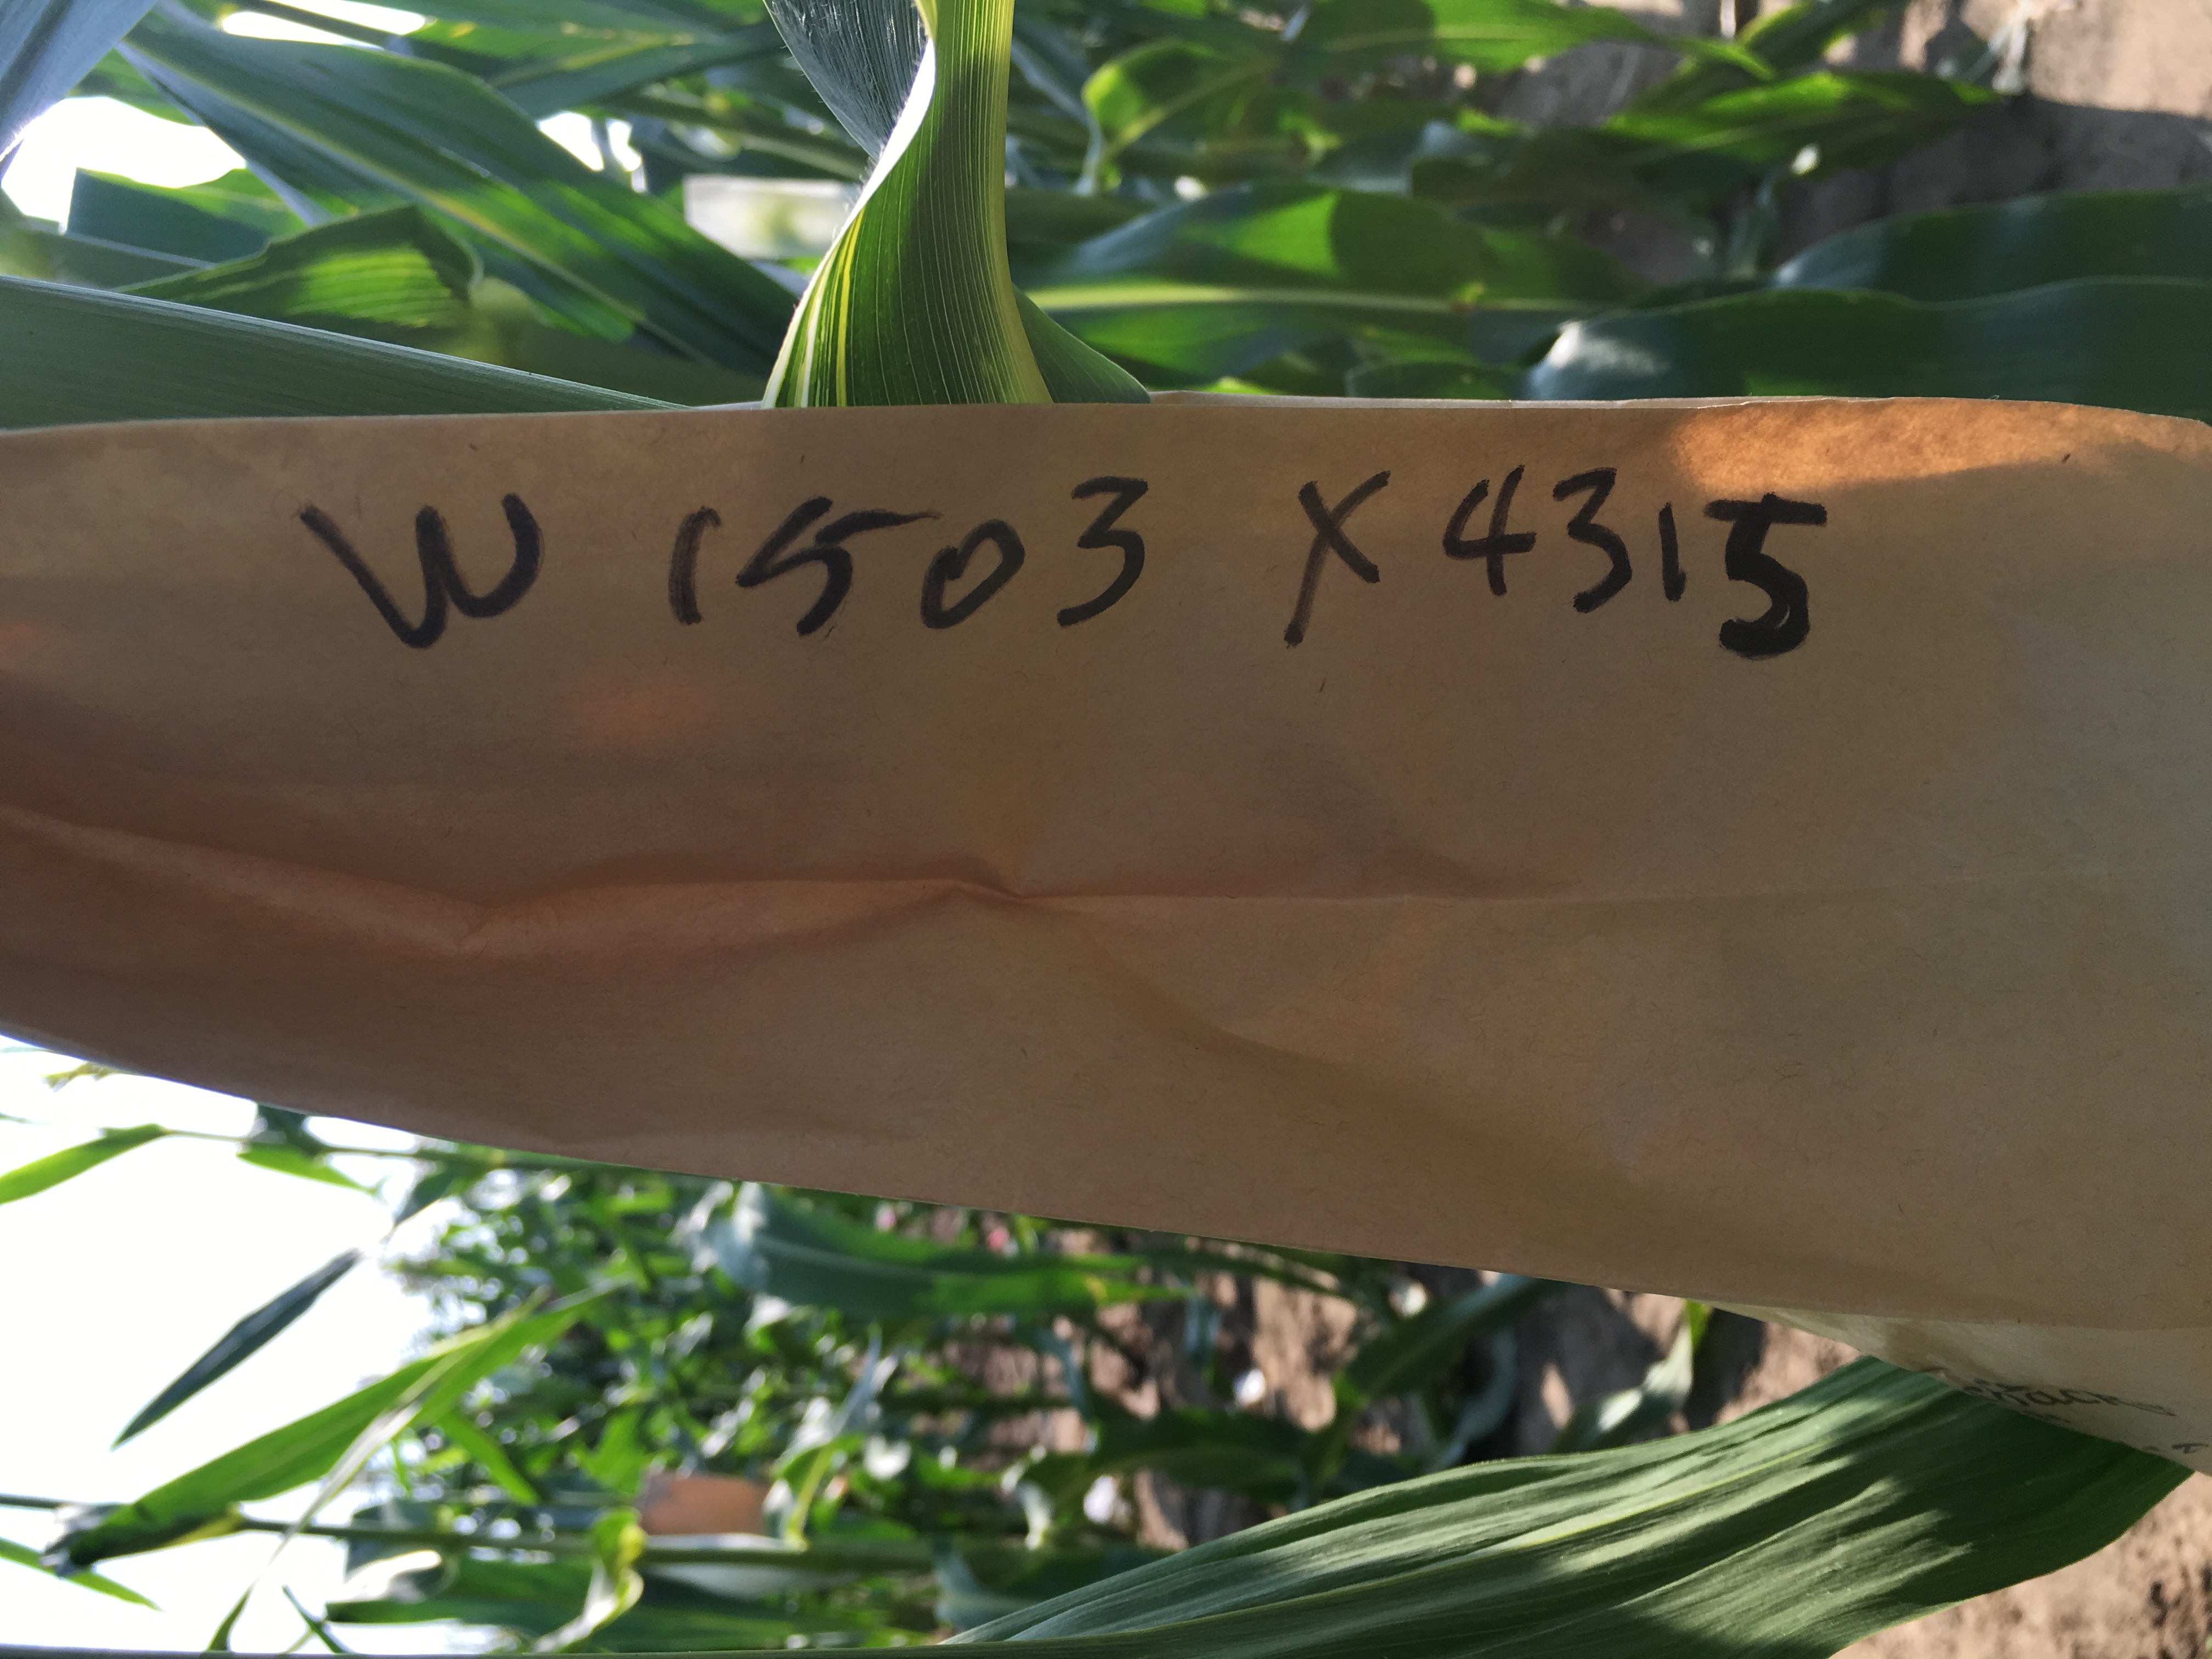 W 1503 X 4315